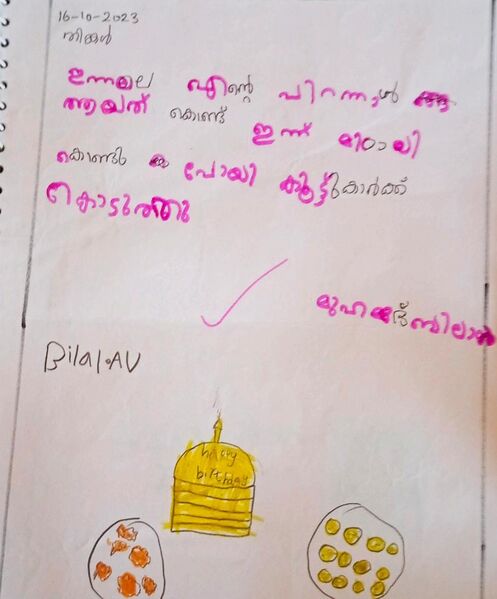 16-10-2023
തിങ്കൾ
ഇന്നലെ എന്റെ പിറന്നാൾ
ആയത് കൊണ്ട് ഇന്ന് മിഠായി
കൊണ്ടു പോയി കൂട്ടുകാർക്ക്
കൊടുത്തു
മുഹമ്മദ് ബിലാൽ
Bilal.AV
happy
birthday